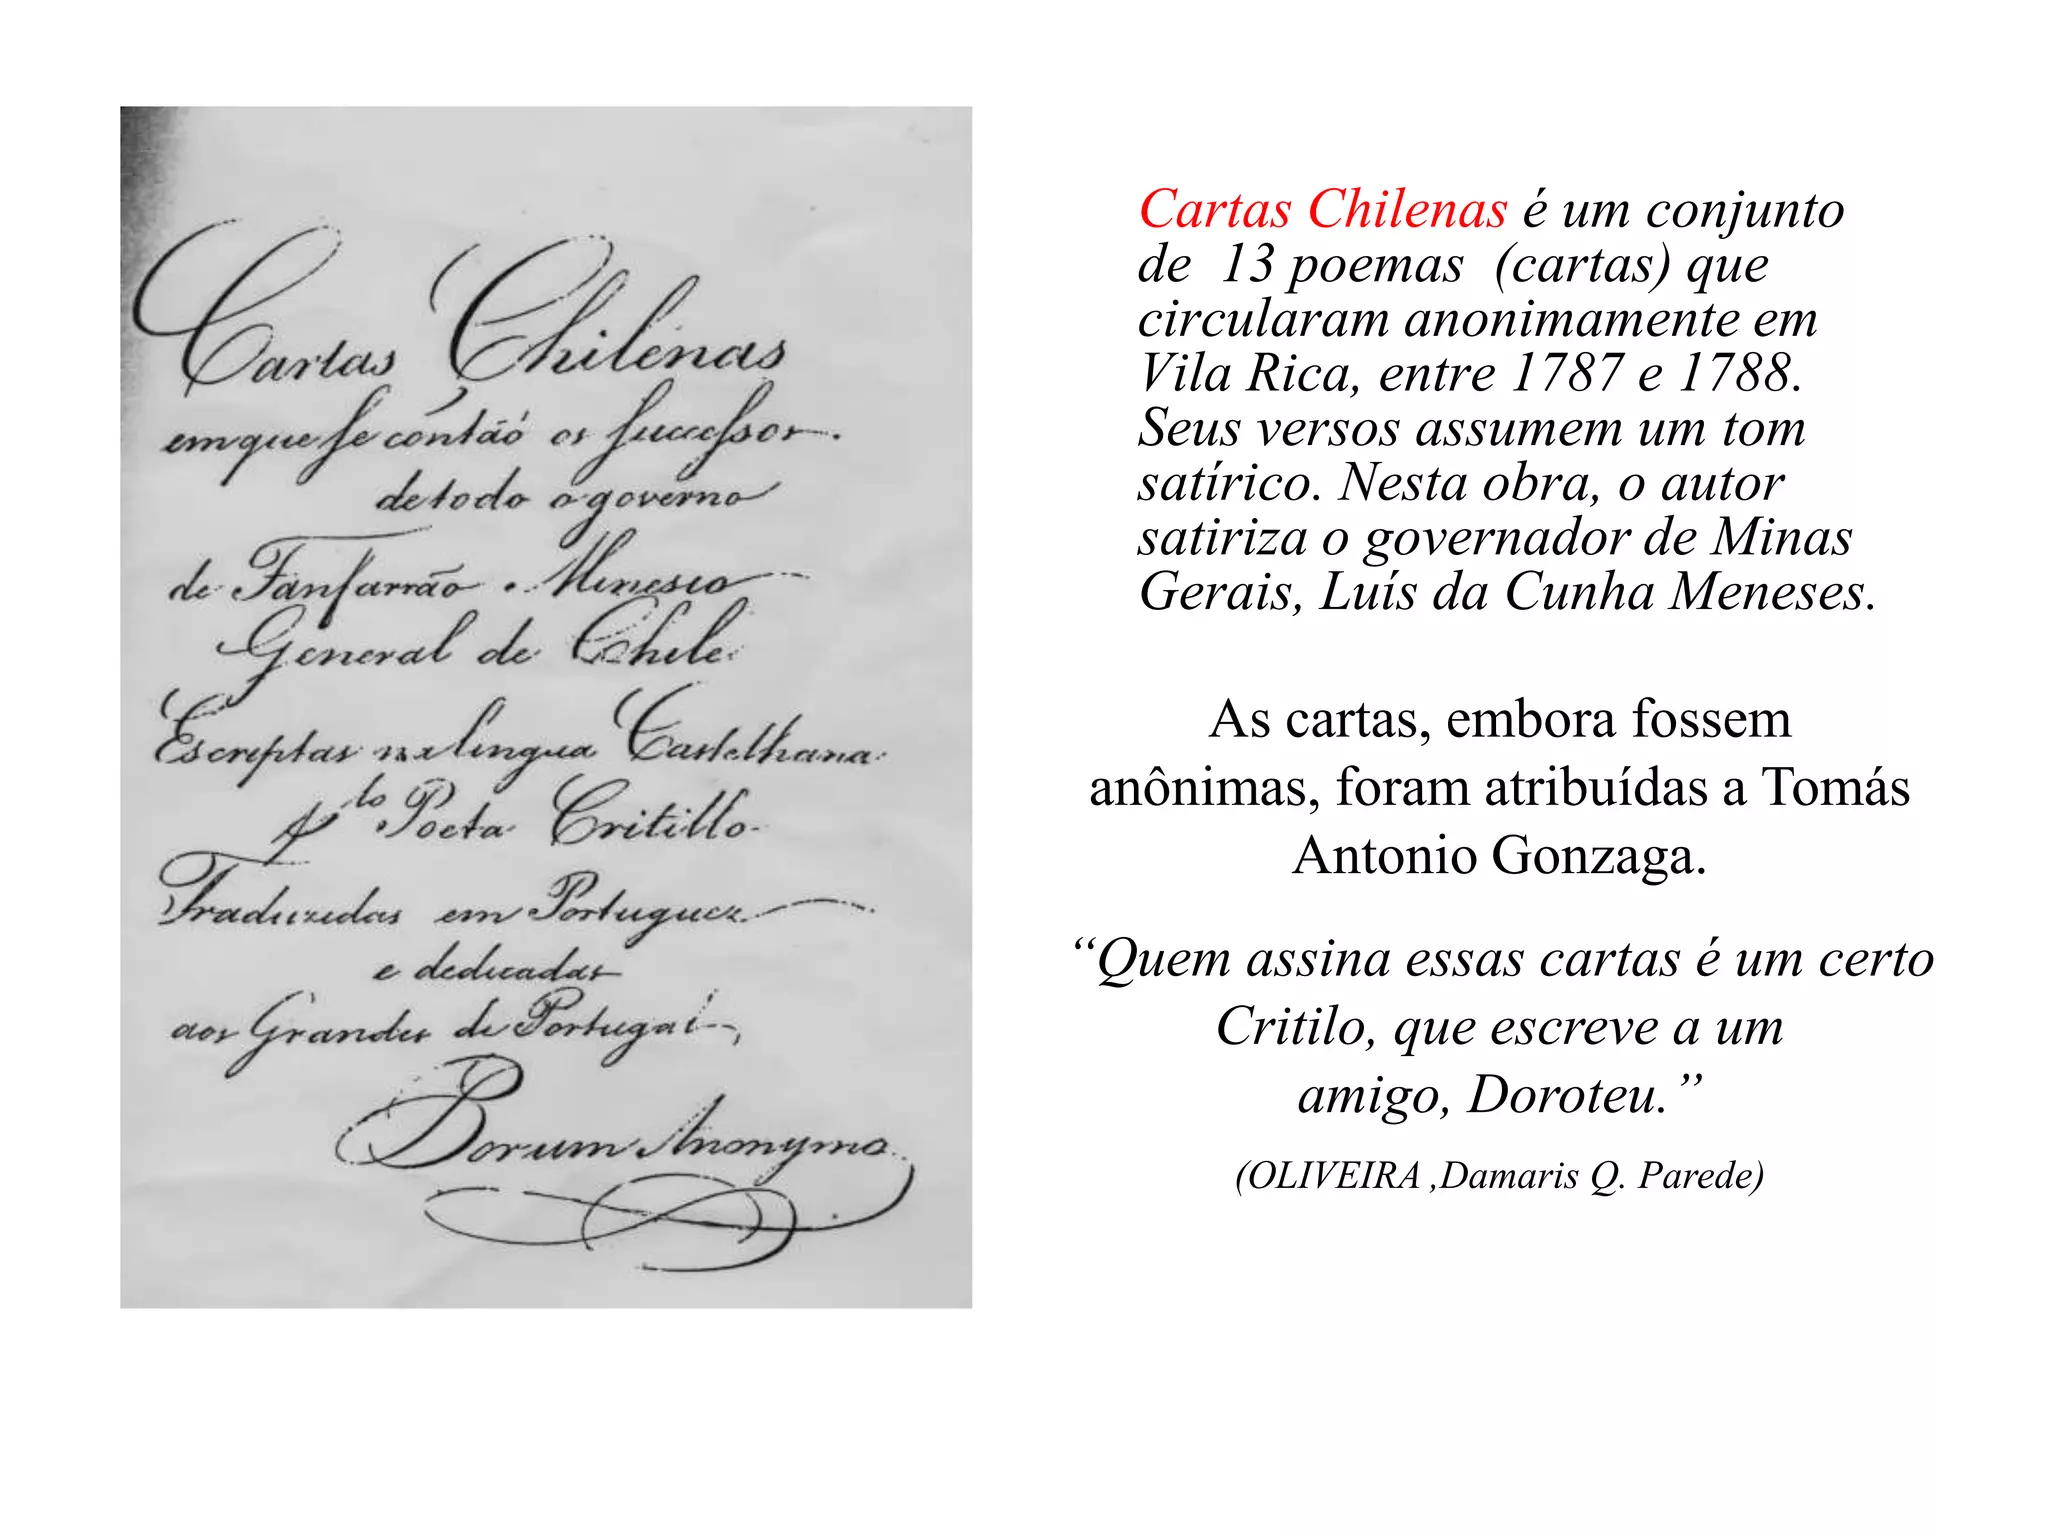 Cartas Chilenas
em que se contão os successos.
de todo o governo
de Fanfarrão Minesio
General de Chile
Escreptas na lingua Castelhana
plo Poeta Critillo
Traduzidas em Portuguez
e dedicadas
aos Grandes de Portugal
Anonymo
Cartas Chilenas é um conjunto
de 13 poemas (cartas) que
circularam anonimamente em
Vila Rica, entre 1787 e 1788.
Seus versos assumem um tom
satírico. Nesta obra, o autor
satiriza o governador de Minas
Gerais, Luís da Cunha Meneses.
As cartas, embora fossem
anônimas, foram atribuídas a Tomás
Antonio Gonzaga.
“Quem assina essas cartas é um certo
Critilo, que escreve a um
amigo, Doroteu.”
(OLIVEIRA ,Damaris Q. Parede)